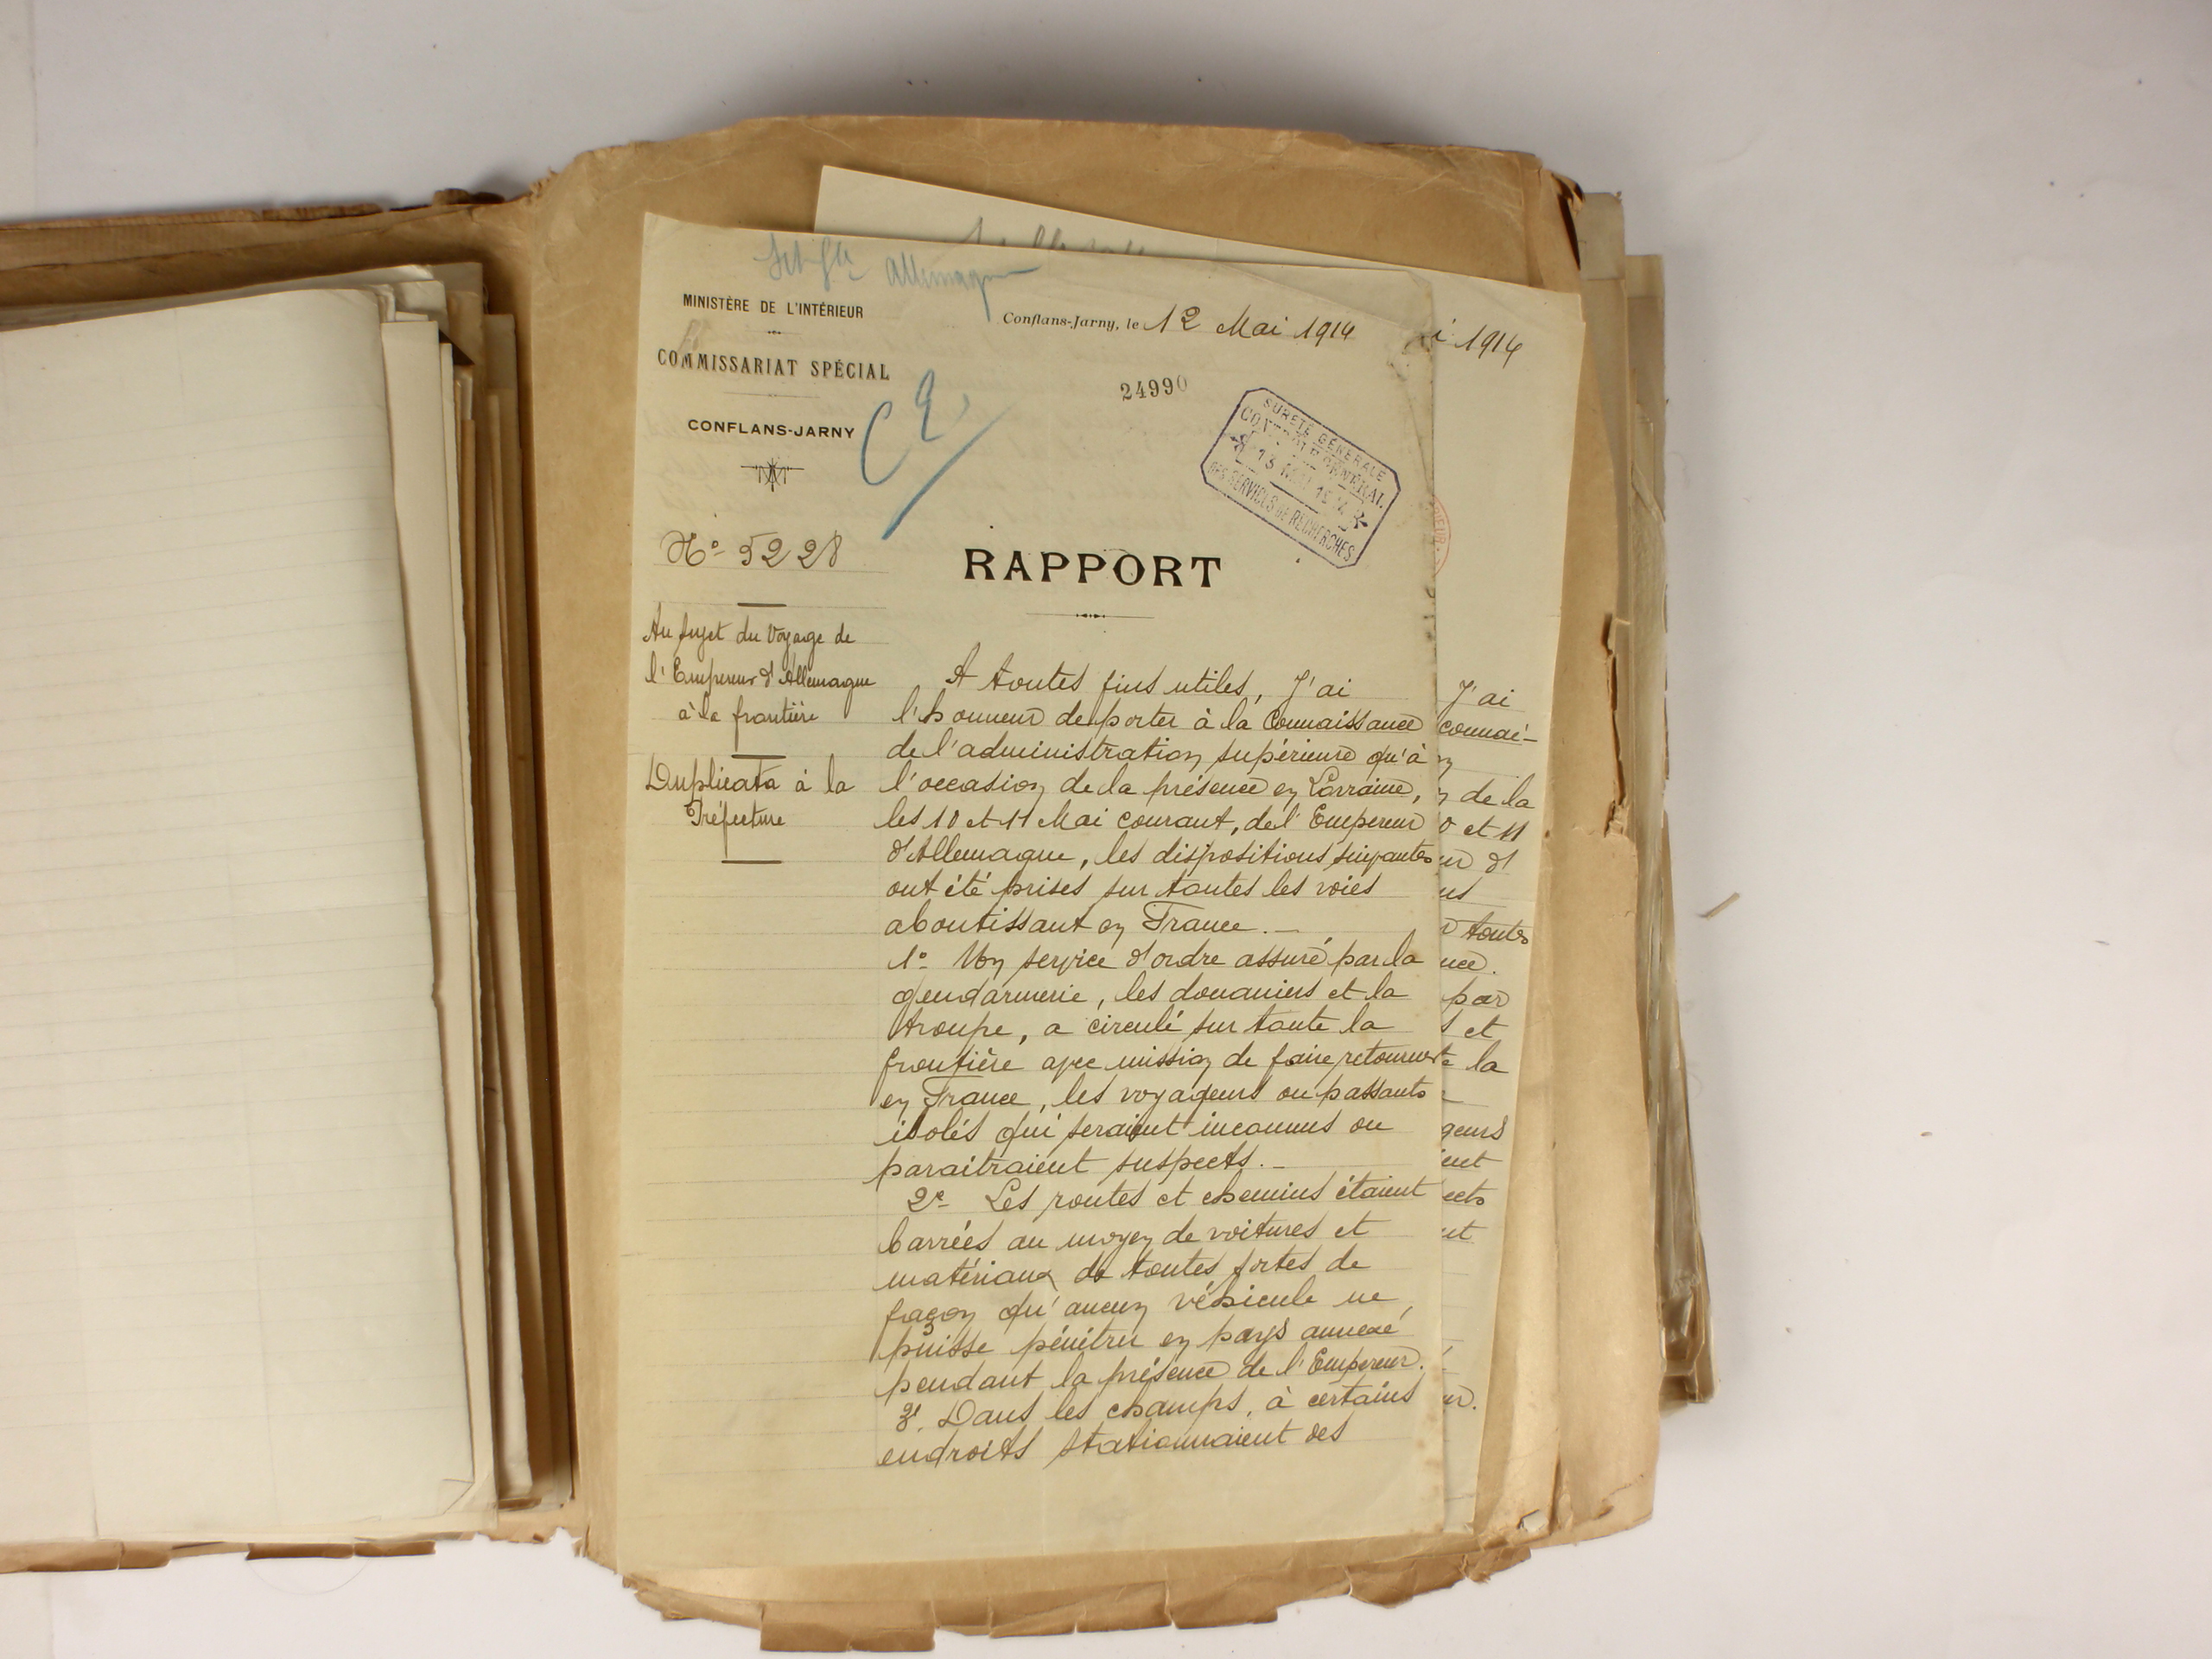 Allemagne
MINISTÈRE DE L'INTÉRIEUR
COMMISSARIAT SPÉCIAL
CONFLANS-JARNY
Conflans-Jarny, le 12 Mai 1914
24990
SURETÉ GÉNÉRALE
CONTROLE GÉNÉRAL
13 MAI 1914
DES SERVICES DE RECHERCHES
No 5228
RAPPORT
Au sujet du Voyage de
l'Empereur d'Allemagne
à la frontière
Duplicata à la
Préfecture
A toutes fins utiles, J'ai
l'honneur de porter à la Connaissance
de l'administration supérieure qu'à
l'occasion de la présence en Lorraine,
les 10 et 11 Mai courant, de l'Empereur
d'Allemagne, les dispositions suivantes
ont été prises sur toutes les voies
aboutissant en France.-
1° Un service d'ordre assuré par la
gendarmerie, les douaniers et la
troupe, a circulé sur toute la
frontière avec mission de faire retourner
en France, les voyageurs ou passants
isolés qui seraient inconnus ou
paraitraient suspects.-
2e Les routes et chemins étaient
barrées au moyen de voitures et
matériaux de toutes sortes de
façon qu'aucun véhicule ne
puisse pénétrer en pays annexé
pendant la présence de l'Empereur.
3°. Dans les champs, à certains
endroits stationnaient des
i 1914
J'ai
connai-
n
n de la
0 et 11
ur d'
us
toutes
nce.
par
s et
te la
geurs
ent
ects
nt
ur.